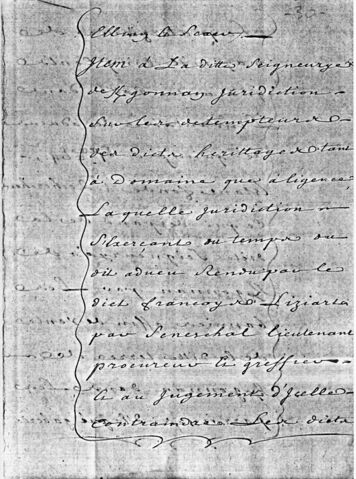 Item à La ditte Seigneurye
Juridiction
Sur les detempteurs
des dicts herittages tant
à Domaine que a ligence
Laquelle Juridiction
S'Exercant du temps du
dit adveu Rendu par le
dict francoys Liziart
par Seneschal lieutenant
procureur et greffier
et au Jugement d'Jcelle
contraindre Les dicts